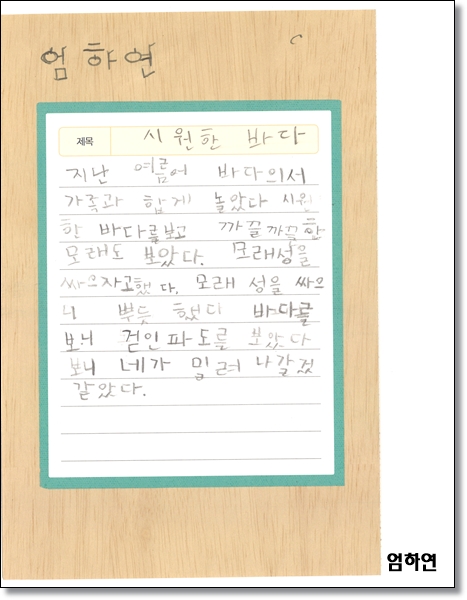 엄하연
제목 시원한 바다
지난 여름에 바다의서
가족과 합게 놀았다 시원
한 바다를보고 까끌까끌한
모래도 보았다. 모래성을
싸으자고했다. 모래 성을 싸으
니 뿌듯 했다 바다를
보니 걷인파도를 보았다
보니 네가 밀려 나갈것
같았다.
엄하연